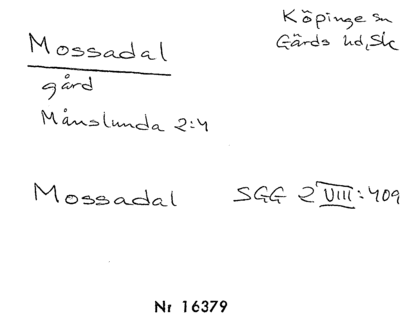 Mossadal
Köpinge sn
Gärds hd, Sk
gård
Månslunda 2:4
Mossadal SGG 2 VIII:409
Nr 16379